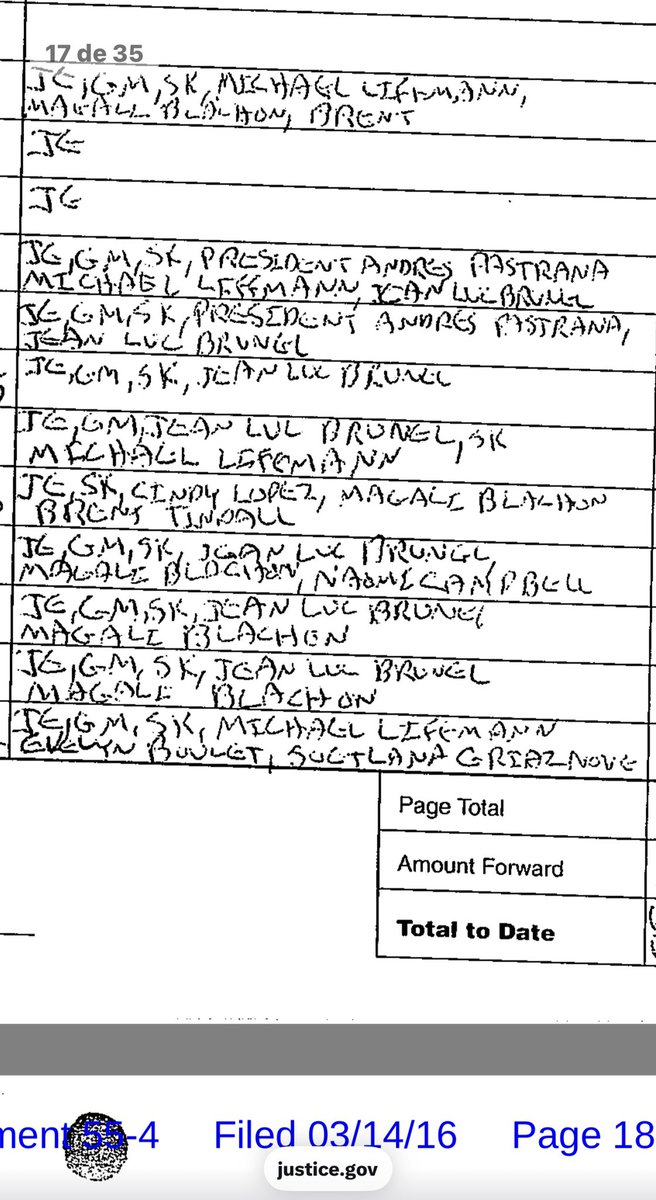 17 de 35
JE, GM, SK, MICHAEL LIFFMANN,
MAGALI BLACHON, BRENT
JE
JE
JE, GM, SK, PRESIDENT ANDRES PASTRANA
MICHAEL LIFFMANN, JEAN LUC BRUNEL
JE, GM, SK, PRESIDENT ANDRES PASTRANA,
JEAN LUC BRUNEL
JE, GM, SK, JEAN LUC BRUNEL
JE, GM, JEAN LUC BRUNEL, SK
MICHAEL LIFFMANN
JE, SK, CINDY LOPEZ, MAGALI BLACHON
BRENT TINDALL
JE, GM, SK, JEAN LUC BRUNEL,
MAGALI BLACHON, NAOMI CAMPBELL
JE, GM, SK, JEAN LUC BRUNEL
MAGALI BLACHON
JE, GM, SK, JEAN LUC BRUNEL
MAGALE BLACHON
JE, GM, SK, MICHAEL LIFFMANN
EVELYN BOULET, SVETLANA GRIAZNOVE
Page Total
Amount Forward
Total to Date
ment 55-4 Filed 03/14/16 Page 18
justice.gov